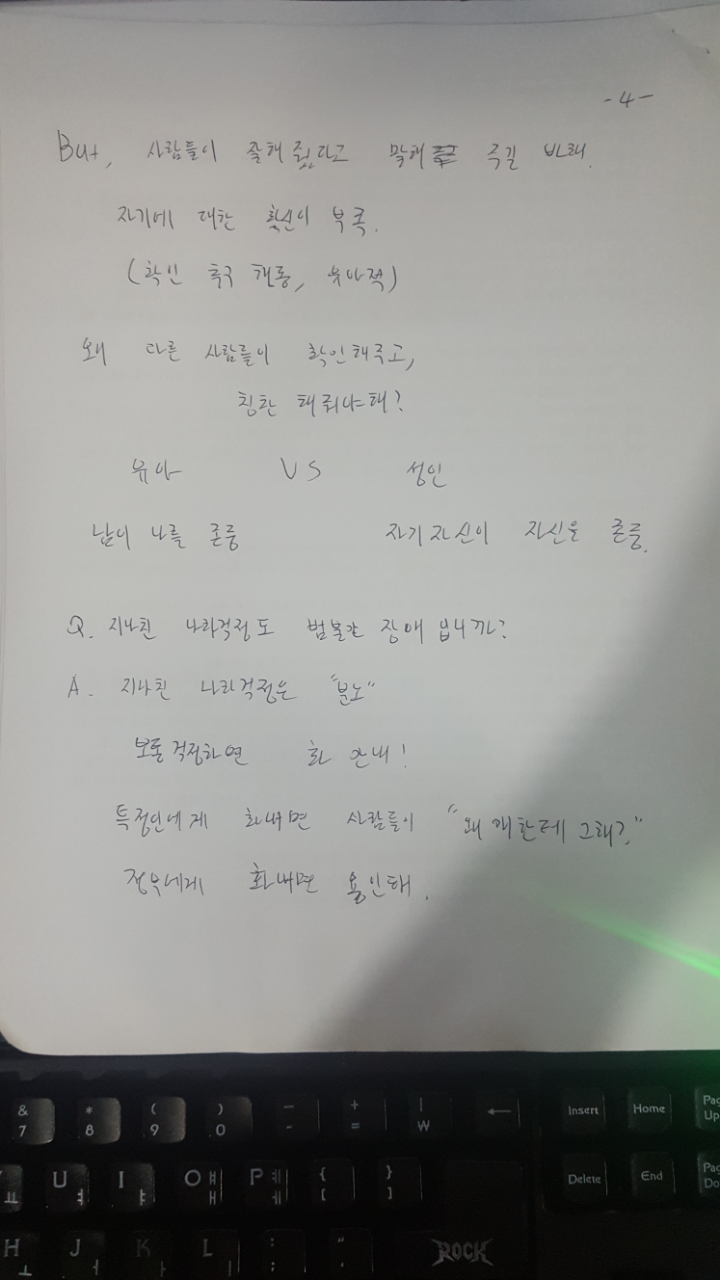 -4-
But, 사람들이 잘해줬다고 말해 주길 바래.
자기에 대한 확신이 부족.
(확인 추구 행동, 유아적)
왜 다른 사람들이 확인해주고,
칭찬 해줘야해?
유아 VS 성인
남이 나를 존중 자기자신이 자신을 존중.
Q. 지나친 나라걱정도 범불안 장애 입니까?
A. 지나친 나라걱정은 "분노"
보통 걱정하면 화 안내!
특정인에게 화내면 사람들이 "왜 걔한테 그래?"
정부에게 화내면 용인돼.
& * ( ) - + | ←
7 8 9 0 - = ₩
Insert Home Pag Up
U ㅕ I ㅑ O ㅒ ㅐ P ㅖ ㅔ { [ } ]
Delete End Pag Do
H ㅗ J ㅓ K ㅏ L ㅣ : ; " '
ROCK